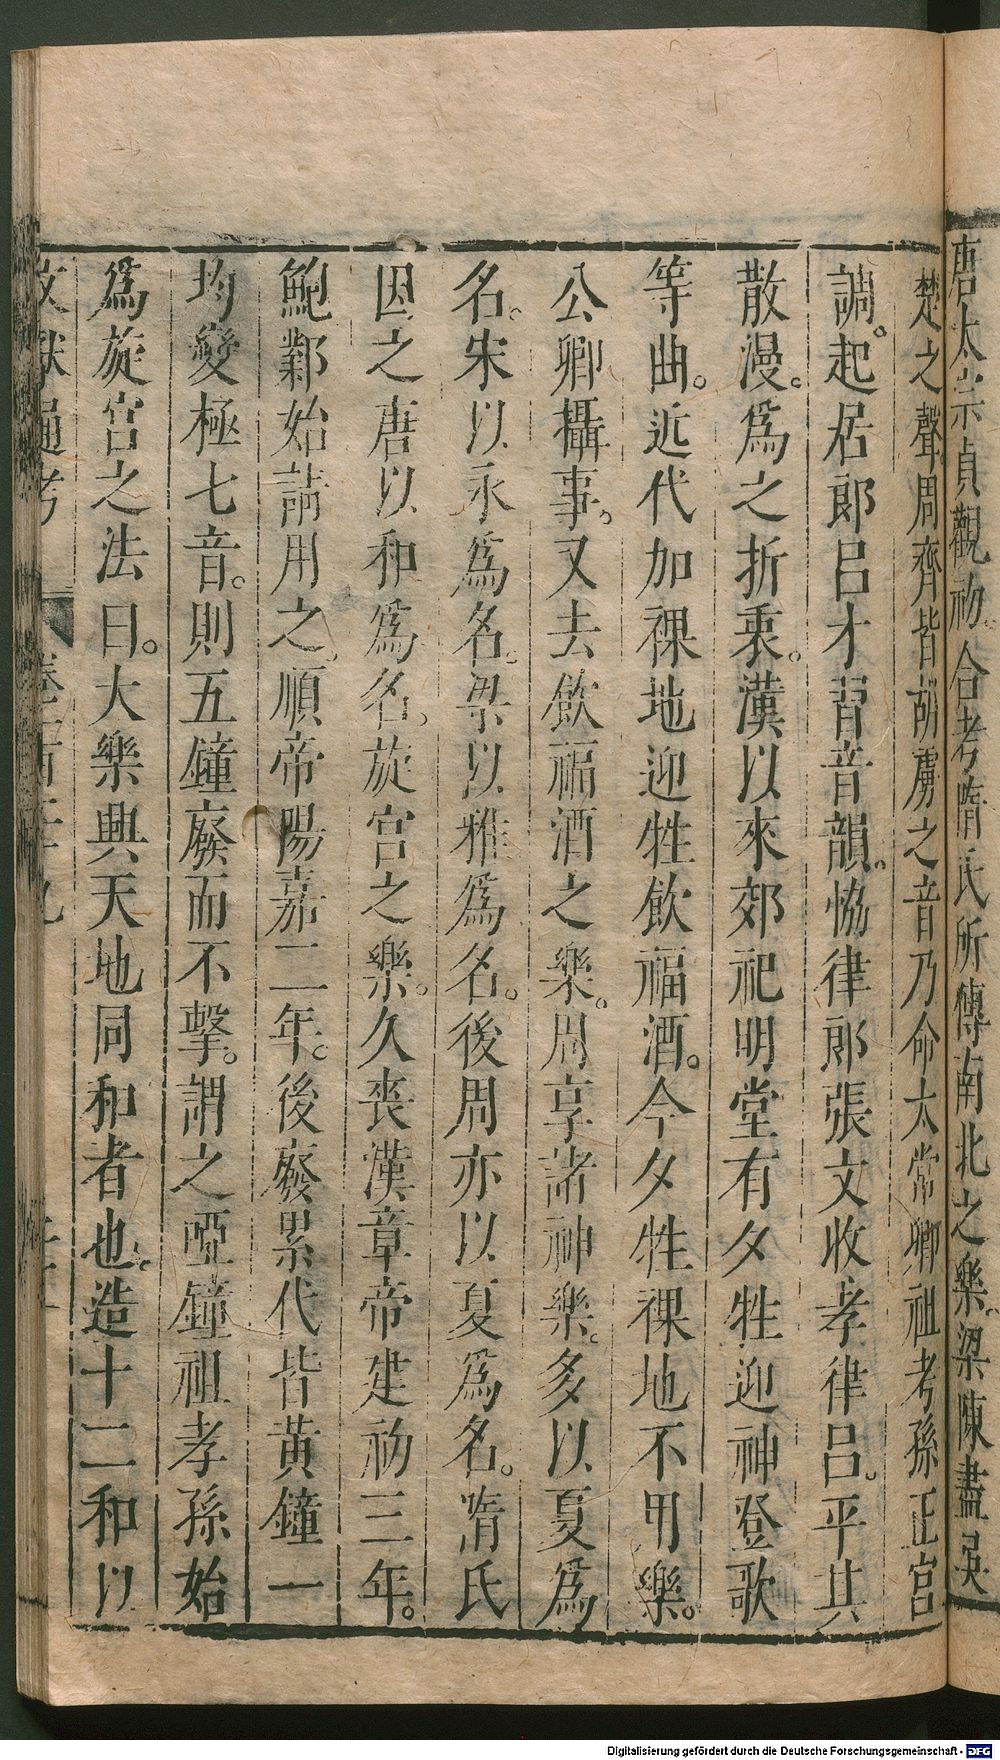 唐太宗貞觀初合考隋氏所傳南北之樂。梁陳盡吳
楚之聲周齊皆胡虜之音乃命太常卿祖考孫正宮
調。起居郎呂才習音韻。恊律郎張文收孝律呂。平其
散漫。爲之折衷。漢以來郊祀明堂有夕牲迎神登歌
等曲。近代加祼地迎牲飲福酒。今夕牲祼地不用樂。
公卿攝事。又去飲福酒之樂。周享諸神樂。多以夏爲
名。宋以永爲名。梁以雅爲名。後周亦以夏爲名。隋氏
因之唐以和爲名。旋宮之樂。久喪漢章帝建初三年。
鮑鄴始請用之。順帝陽嘉二年。後廢累代皆黃鐘一
均變極七音。則五鐘廢而不擊。謂之啞鐘祖孝孫始
爲旋宮之法曰。大樂與天地同和者也。造十二和以
文獻通考
Digitalisierung gefördert durch die Deutsche Forschungsgemeinschaft - DFG